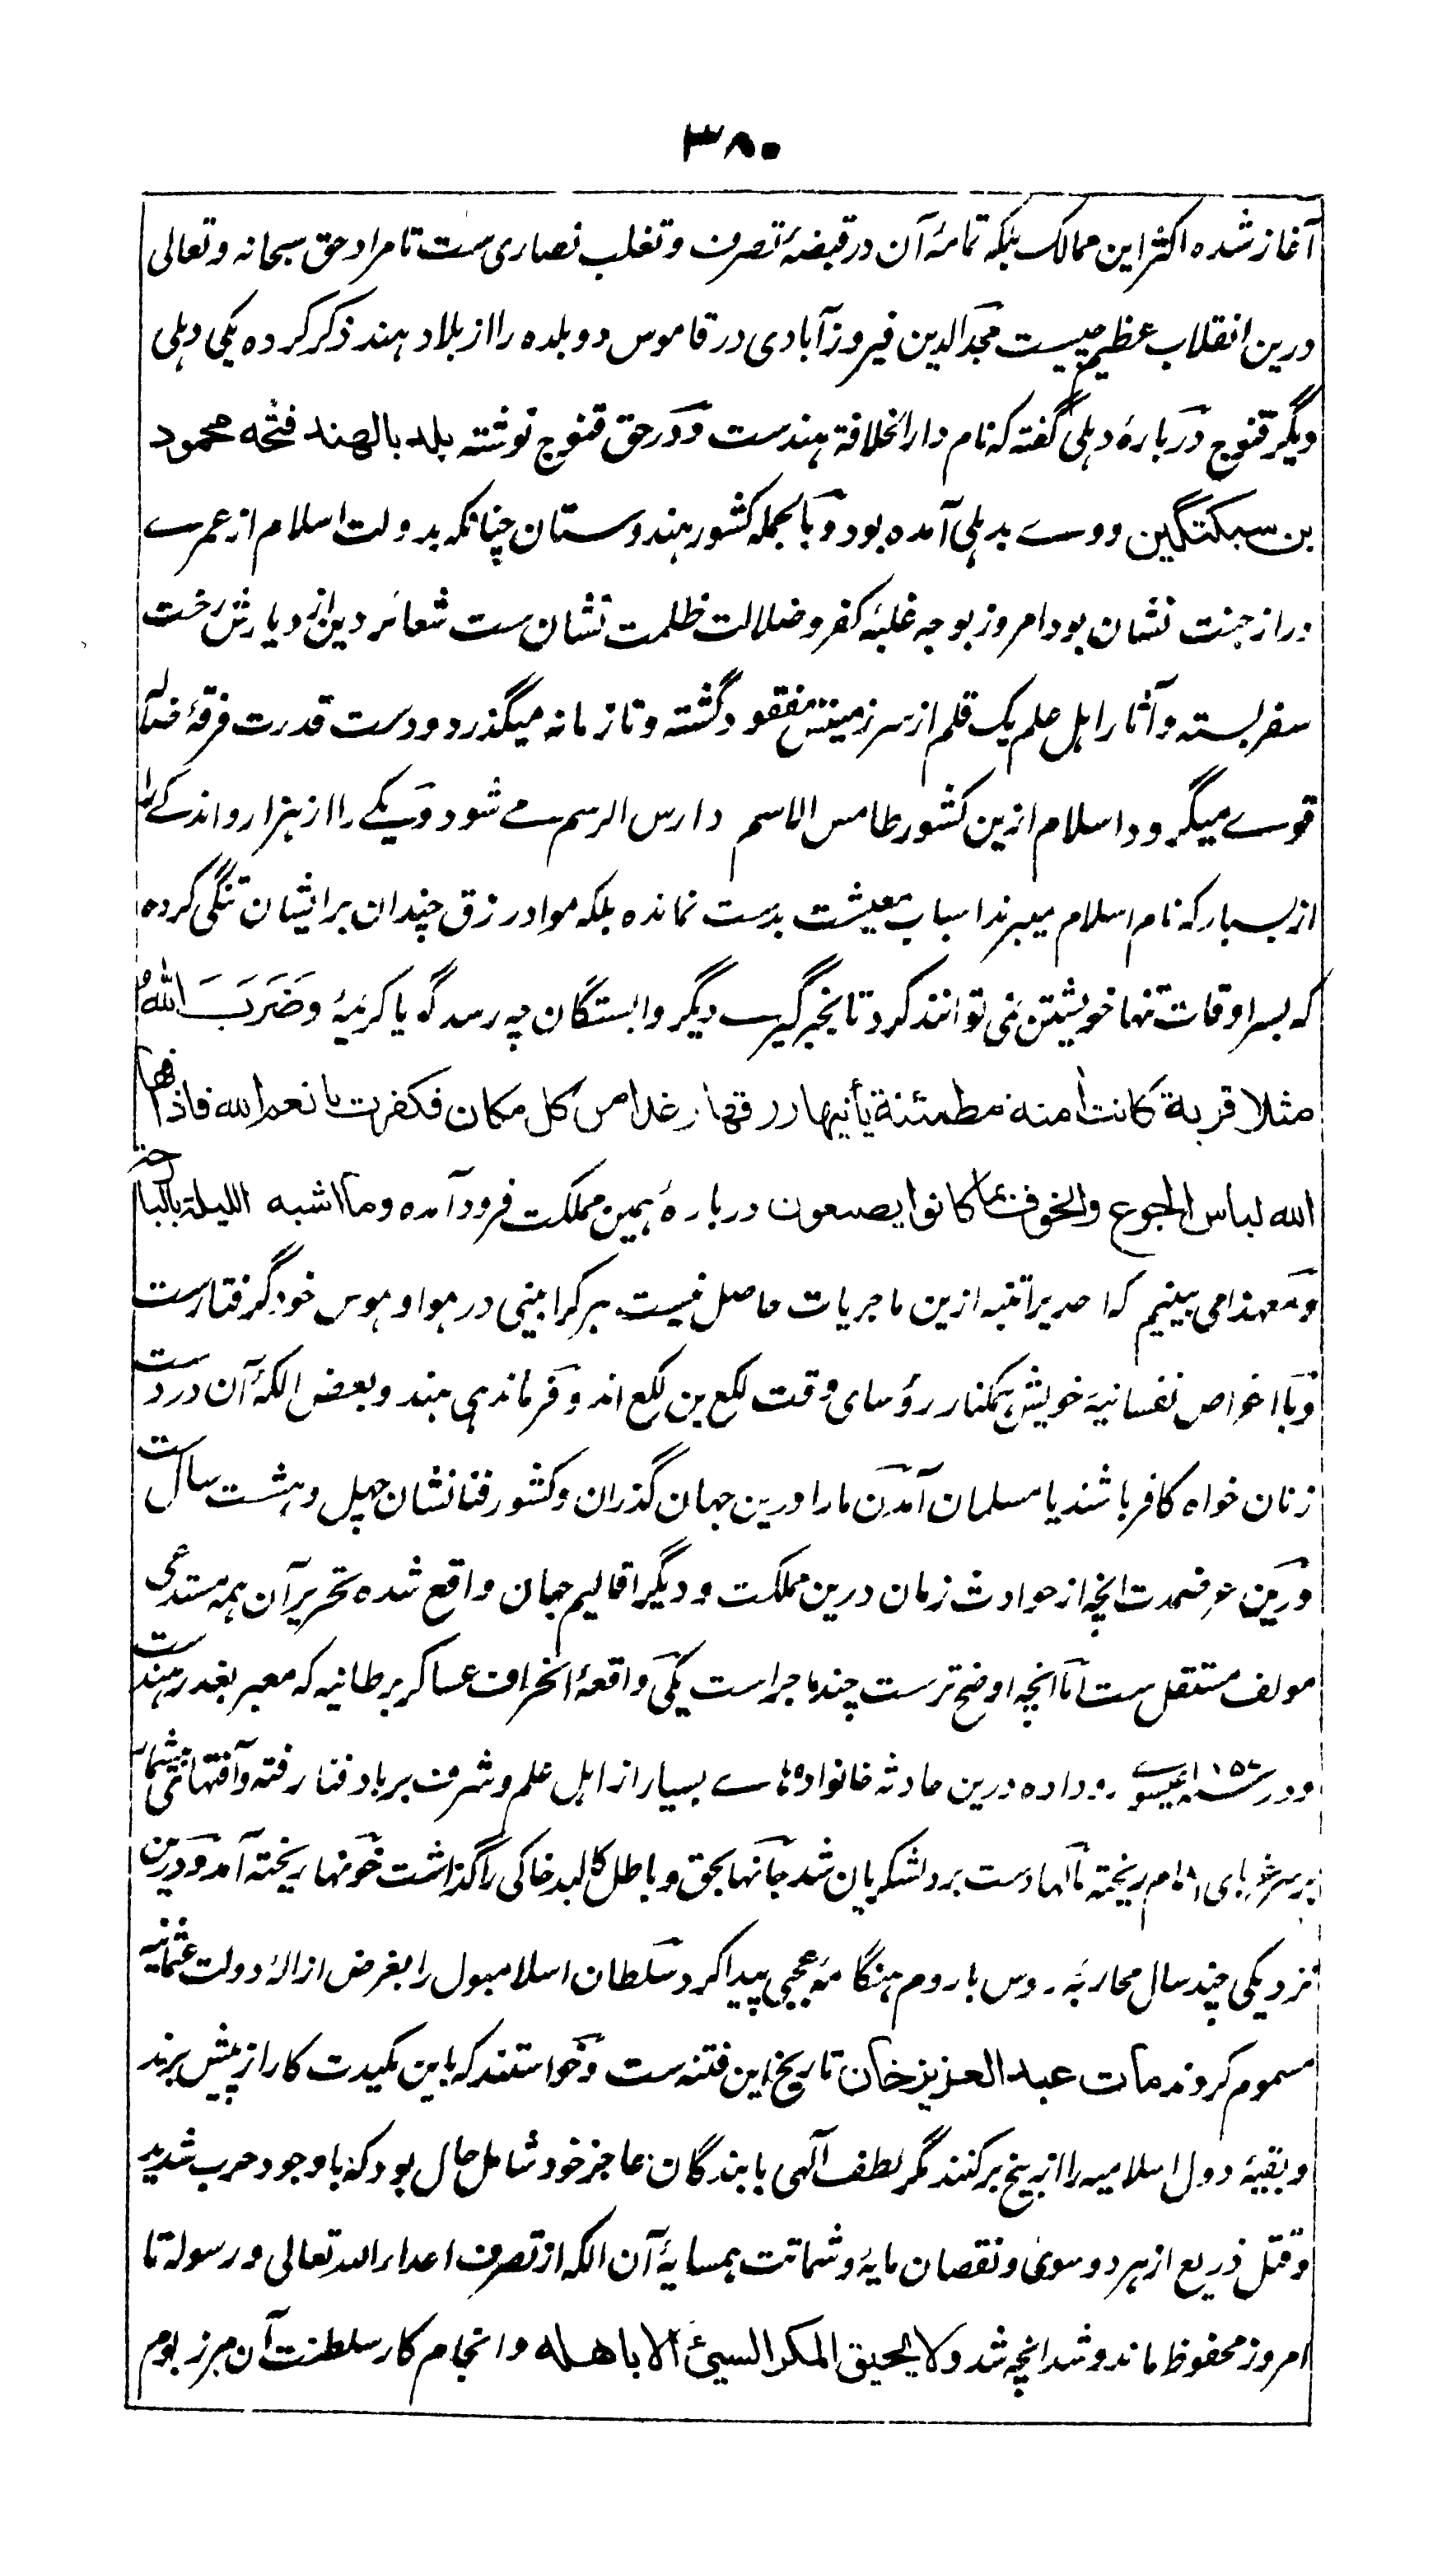 ۳۸۰
آغاز شده اکثر این ممالک بلکه تمامهٔ آن در قبضهٔ تصرف و تغلب نصاری ست تا مراد حق سبحانه و تعالی
درین انقلاب عظیم چیست مجد الدین فیروزآبادی در قاموس دو بلده را از بلاد هند ذکر کرده یکی دهلی
دیگر قنوج دربارهٔ دهلی گفته که نام دار الخلافة هندست و در حق قنوج نوشته بلد بالهند فتحه محمود
بن سبکتگین و وے بدهلی آمده بود و بالجمله کشور هندوستان چنانکه بدولت اسلام از عمرے
دراز جنت نشان بود امروز بوجه غلبهٔ کفر و ضلالت ظلمت نشان ست شعائر دین از دیارش رخت
سفر بسته و آثار اهل علم یک قلم از سرزمینش مفقود گشته و تا زمانه میگذرد و دست قدرت فرقهٔ ضاله
قوے میگردد اسلام ازین کشور طامس الاسم دارس الرسم مے شود و یکے را از هزار و اندکے را
از بسیار که نام اسلام میبرند اسباب معیشت بدست نمانده بلکه مواد رزق چندان بر ایشان تنگی کرده
که بسر اوقات تنها خویشتن نمی توانند کرد تا بخبر گیرے دیگر وابستگان چه رسد گویا کریمهٔ وَضَرَبَ اللهُ
مثلا قریة کانت آمنة مطمئنة یأتیها رزقها رغدا من کل مکان فکفرت بانعم الله فاذاقها
الله لباس الجوع والخوف بما کانوا یصنعون دربارهٔ همین مملکت فرود آمده وما اشبه اللیلة بالبارحة
و معهذا می بینیم که احدیرا تنبه ازین ماجریات حاصل نیست هر کرا بینی در هوا و هوس خود گرفتارست
و با اغراض نفسانیه خویش همکنار رؤسای وقت لکع بن لکع اند و فرماندهی هند و بعض الکهٔ آن در دست
زنان خواه کافر باشند یا مسلمان آمدن ما را درین جهان گذران و کشور فنا نشان چهل و هشت سال ست
و درین عرض مدت انچه از حوادث زمان درین مملکت و دیگر اقالیم جهان واقع شده تحریر آن همه مستدعی
مولف مستقل ست اما انچه اوضح ترست چند ماجراست یکی واقعهٔ انحراف عساکر برطانیه که معبر بغدر هندست
و در ۱۸۵۷ عیسوے روداده درین حادثه خانواده هاے بسیار از اهل علم و شرف برباد فنا رفته و آفتهای بیشمار
بر سر غربای انام ریخته مالها دست برد لشکریان شد جانها بحق و باطل کالبد خاکی را گذاشت خونها ریخته آمد و درین
نزدیکی چند سال محاربهٔ روس با روم هنگامهٔ عجبی پیدا کرد سلطان اسلامبول را بغرض ازالهٔ دولت عثمانیه
مسموم کردند مات عبد العزیز خان تاریخ این فتنه ست و خواستند که باین مکیدت کار از پیش برند
و بقیهٔ دول اسلامیه را از بیخ برکنند مگر لطف الٓهی با بندگان عاجز خود شامل حال بود که باوجود حرب شدید
و قتل ذریع از هر دو سوی و نقصان مایه و شماتت همسایهٔ آن الکه از تصرف اعداء الله تعالی و رسوله تا
امروز محفوظ ماند و شد انچه شد ولا یحیق المکر السیئ الا باهله و انجام کار سلطنت آن مرز بوم